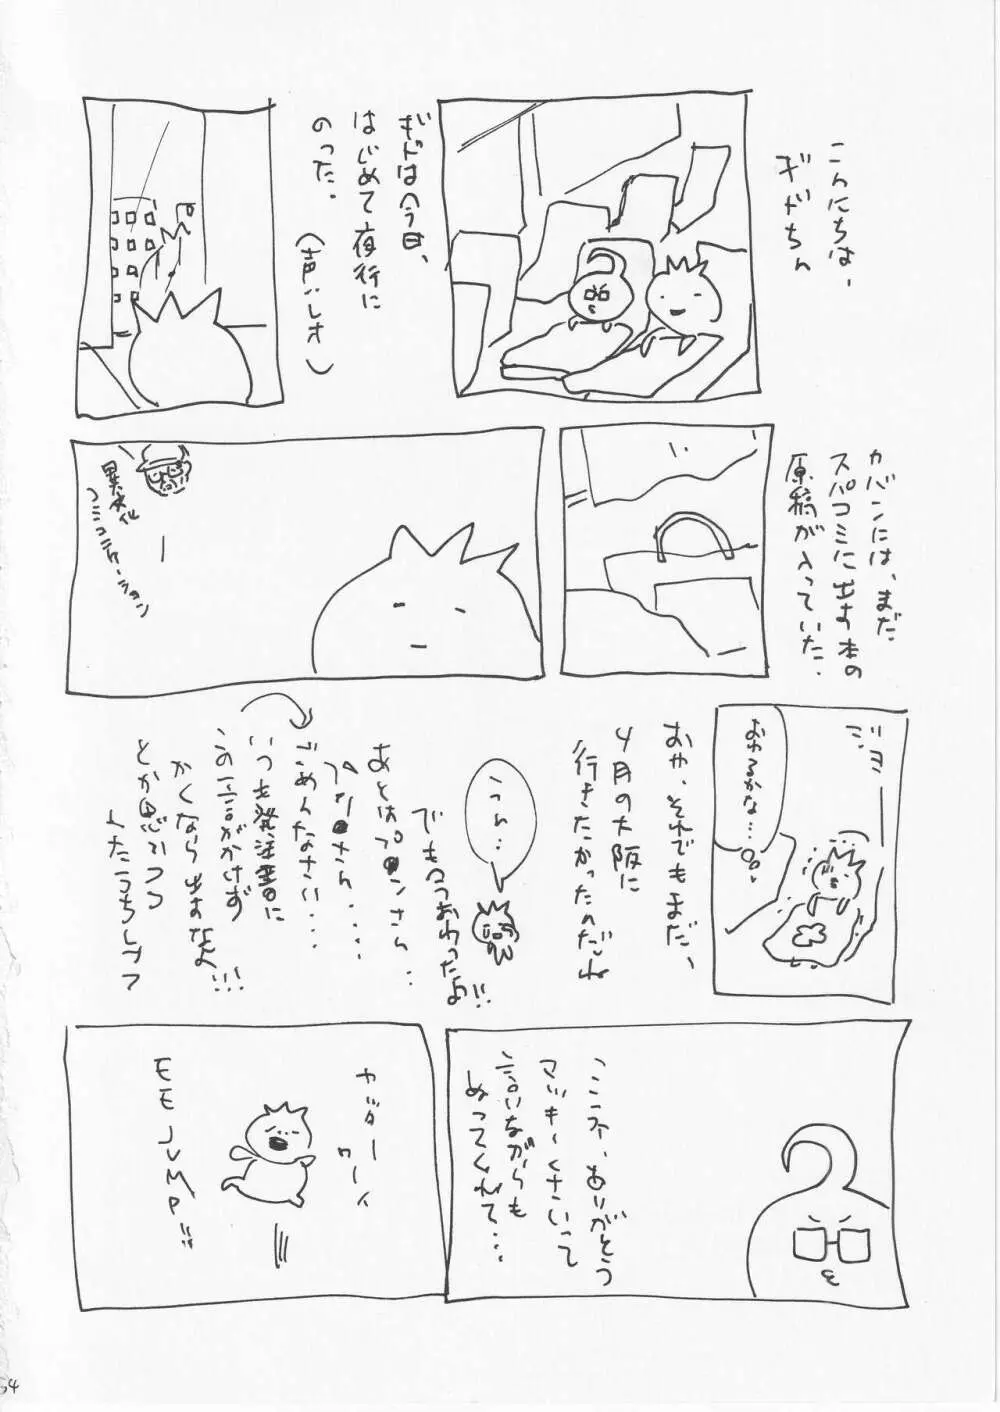 こんにちは、
ギドちん
ギドは今日、
はじめて夜行に
のった。
(声:レオ)
カバンには、まだ
スパコミに出す本の
原稿が入っていた。
ジョ
おわるかな…
おや、それでもまだ、
4月の大阪に
行きたかったのだね
うつん…
でも
おわったよ!!
あとは
さん…
ごめんなさい…
いつも発注書に
この一言がかけず
かくなら出すなよ!!!
とか思いつつ
くたうちしつつ
ここア、ありがとう
マッキーくさいって
言いながらも
ぬってくれて…
カッター
ワーイ
EE JUMP!!